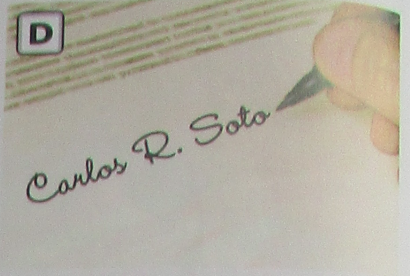 D
Carlos R. Soto